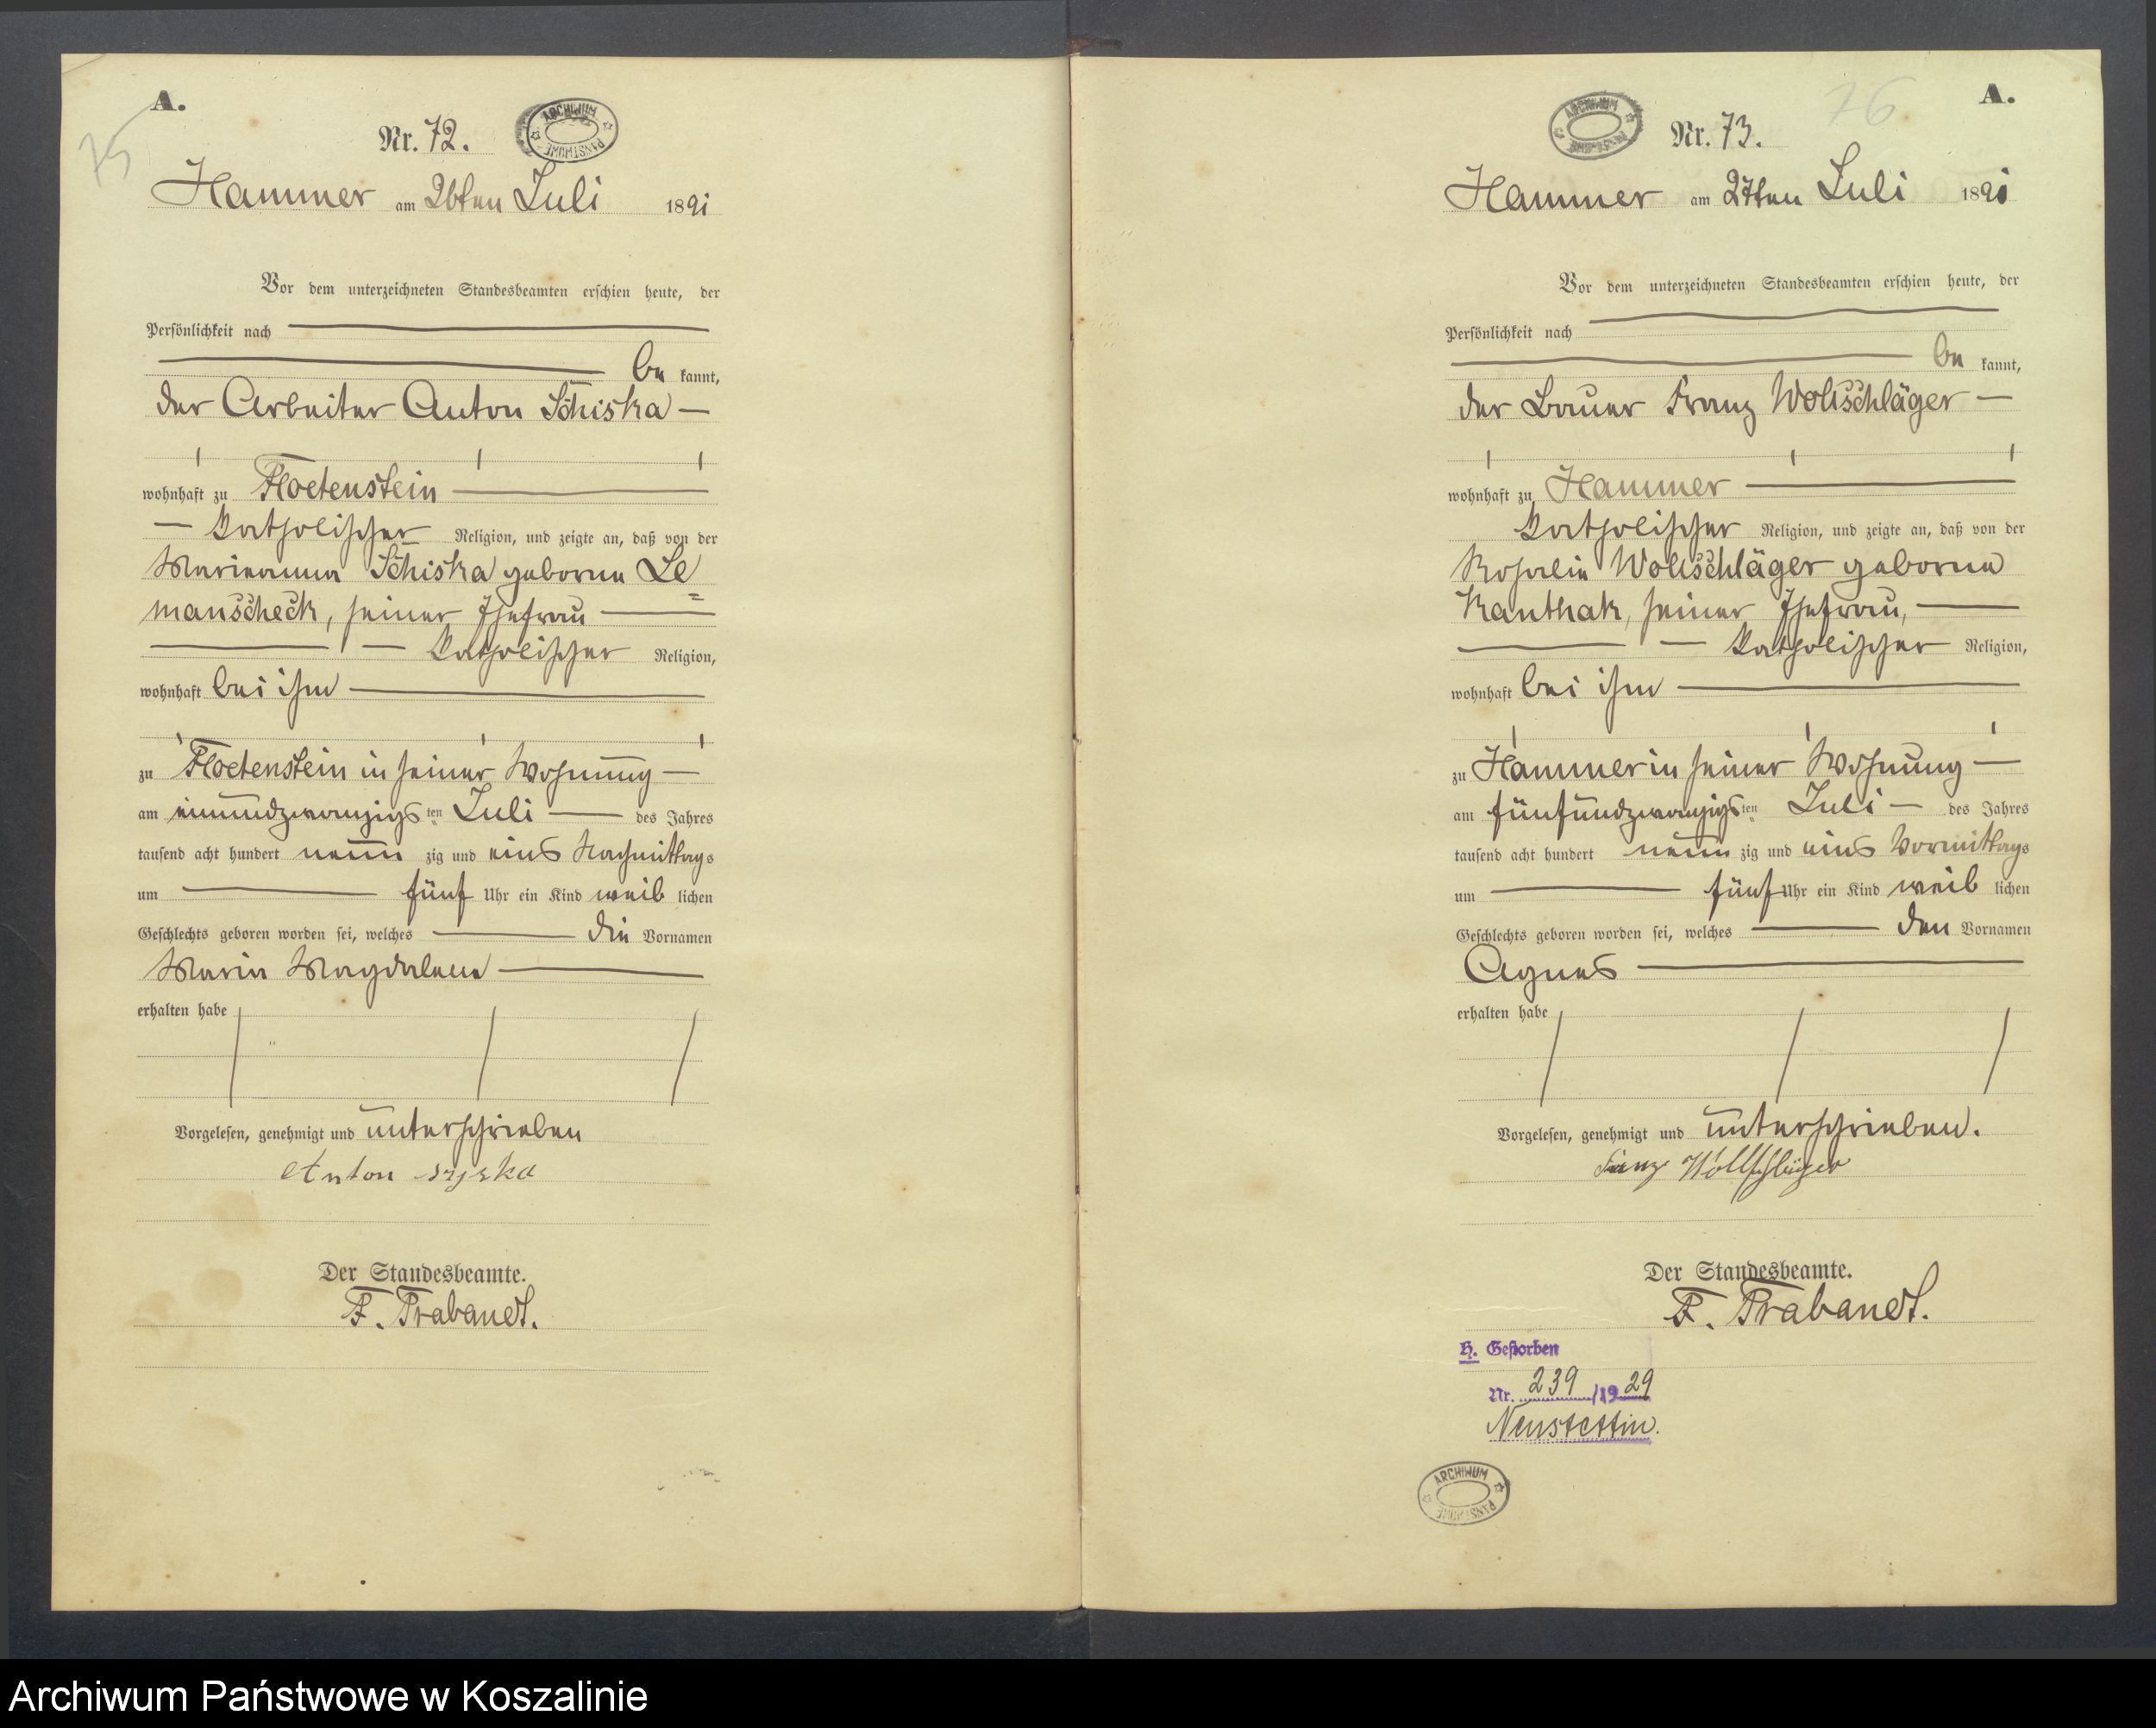 A.
75
Nr. 72.
ARCHIWUM PAŃSTWOWE
Hammer am 26ten Juli 1891
Vor dem unterzeichneten Standesbeamten erschien heute, der
Persönlichkeit nach
be kannt,
der Arbeiter Anton Schiska —
wohnhaft zu Floetenstein
— katholischer Religion, und zeigte an, daß von der
Marianna Schiska geborne Le=
manscheck, seiner Ehefrau
— katholischer Religion,
wohnhaft bei ihm
zu Floetenstein in seiner Wohnung —
am einundzwanzigsten Juli — des Jahres
tausend acht hundert neun zig und eins Nachmittags
um fünf Uhr ein Kind weib lichen
Geschlechts geboren worden sei, welches die Vornamen
Maria Magdalena
erhalten habe
Vorgelesen, genehmigt und unterschrieben
Anton
Der Standesbeamte.
F. Trabandt.
76
A.
ARCHIWUM PAŃSTWOWE
Nr. 73.
Hammer am 27ten Juli 1891
Vor dem unterzeichneten Standesbeamten erschien heute, der
Persönlichkeit nach
be kannt,
der Bauer Franz Wollschläger —
wohnhaft zu Hammer
katholischer Religion, und zeigte an, daß von der
Rosalie Wollschläger geborne
Kanthak, seiner Ehefrau,
— katholischer Religion,
wohnhaft bei ihm
zu Hammer in seiner Wohnung —
am fünfundzwanzigsten Juli — des Jahres
tausend acht hundert neun zig und eins Vormittags
um fünf Uhr ein Kind weib lichen
Geschlechts geboren worden sei, welches den Vornamen
Agnes
erhalten habe
Vorgelesen, genehmigt und unterschrieben.
Franz Wollschläger
Der Standesbeamte.
F. Trabandt.
H. Gestorben
Nr. 239/1929
Neustettin.
ARCHIWUM PAŃSTWOWE
Archiwum Państwowe w Koszalinie